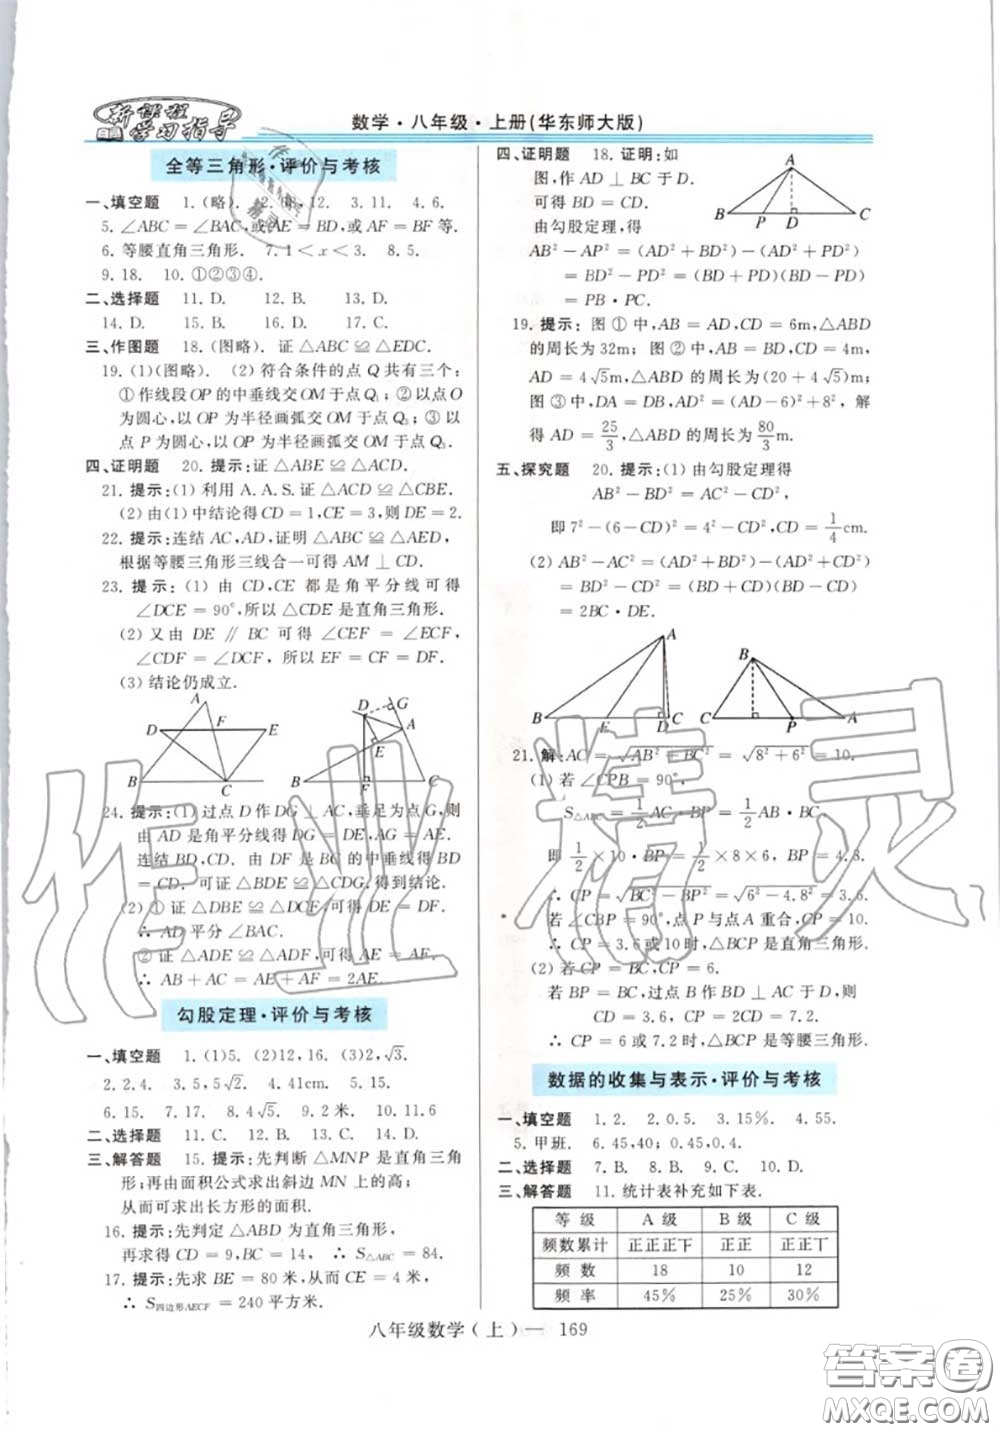 新课程
学习指导
数学·八年级·上册(华东师大版)
全等三角形·评价与考核
一、填空题 1.(略). 12. 3.11. 4.6.
5.∠ABC=∠BAC,或AE=BD,或AF=BF等.
6.等腰直角三角形. 7.1<x<3. 8.5.
9.18. 10.①②③④.
二、选择题 11.D. 12.B. 13.D.
14.D. 15.B. 16.D. 17.C.
三、作图题 18.(图略). 证△ABC≌△EDC.
19.(1)(图略). (2)符合条件的点Q共有三个:
①作线段OP的中垂线交OM于点Q₁;②以点O
为圆心,以OP为半径画弧交OM于点Q₂;③以
点P为圆心,以OP为半径画弧交OM于点Q₃.
四、证明题 20.提示:证△ABE≌△ACD.
21.提示:(1)利用A.A.S.证△ACD≌△CBE.
(2)由(1)中结论得CD=1,CE=3,则DE=2.
22.提示:连结AC,AD,证明△ABC≌△AED,
根据等腰三角形三线合一可得AM⊥CD.
23.提示:(1)由CD,CE都是角平分线可得
∠DCE=90°,所以△CDE是直角三角形.
(2)又由DE∥BC可得∠CEF=∠ECF,
∠CDF=∠DCF,所以EF=CF=DF.
(3)结论仍成立.
A
D F E
B C
D G
A
E
B F C
24.提示:(1)过点D作DG⊥AC,垂足为点G,则
由AD是角平分线得DG=DE,AG=AE.
连结BD,CD.由DF是BC的中垂线得BD
=CD.可证△BDE≌△CDG,得到结论.
(2)①证△DBE≌△DCE,可得∠DAE=∠DAC.
∴AD平分∠BAC.
②证△ADE≌△ADG,可得AE=AG.
∴AB+AC=AE+AF=2AE.
勾股定理·评价与考核
一、填空题 1.(1)5. (2)12,16. (3)2,√3.
2.2,4. 3.5,5√2. 4.41cm. 5.15.
6.15. 7.17. 8.4√5. 9.2米. 10.11.6
二、选择题 11.C. 12.B. 13.D. 14.D.
三、解答题 15.提示:先判断△MNP是直角三角
形;再由面积公式求出斜边MN上的高;
从而可求出长方形的面积.
16.提示:先判定△ABD为直角三角形,
再求得CD=9,BC=14,∴S△ABC=84.
17.提示:先求BE=80米,从而CE=4米,
∴S四边形AECF=240平方米.
四、证明题 18.证明:如
图,作AD⊥BC于D.
可得BD=CD.
由勾股定理,得
A
B P D C
AB²-AP²=(AD²+BD²)-(AD²+PD²)
=BD²-PD²=(BD+PD)(BD-PD)
=PB·PC.
19.提示:图①中,AB=AD,CD=6m,△ABD
的周长为32m;图②中,AB=BD,CD=4m,
AD=4√5m,△ABD的周长为(20+4√5)m;
图③中,DA=DB,AD²=(AD-6)²+8²,解
得AD=25/3,△ABD的周长为80/3m.
五、探究题 20.提示:(1)由勾股定理得
AB²-BD²=AC²-CD²,
即7²-(6-CD)²=4²-CD²,CD=1/4cm.
(2)AB²-AC²=(AD²+BD²)-(AD²+CD²)
=BD²-CD²=(BD+CD)(BD-CD)
=2BC·DE.
A
B E D C
B
C P A
21.解:AC=√AB²+BC²=√8²+6²=10.
(1)若∠CPB=90°,
S△ABC=1/2AC·BP=1/2AB·BC.
即1/2×10·BP=1/2×8×6,BP=4.8.
∴CP=√BC²-BP²=√6²-4.8²=3.6.
若∠CBP=90°,点P与点A重合,CP=10.
∴CP=3.6或10时,△BCP是直角三角形.
(2)若CP=CB,CP=6.
若BC=BP,过点B作BD⊥AC于D,则
CD=3.6,CP=2CD=7.2.
∴CP=6或7.2时,△BCP是等腰三角形.
数据的收集与表示·评价与考核
一、填空题 1.2. 2.0.5. 3.15%. 4.55.
5.甲班. 6.45,40;0.45,0.4.
二、选择题 7.B. 8.B. 9.C. 10.D.
三、解答题 11.统计表补充如下表.
等级 A级 B级 C级
频数累计 正正正下 正正 正正丅
频数 18 10 12
频率 45% 25% 30%
八年级数学(上)— 169
作业精灵
答案卷
MXQE.COM